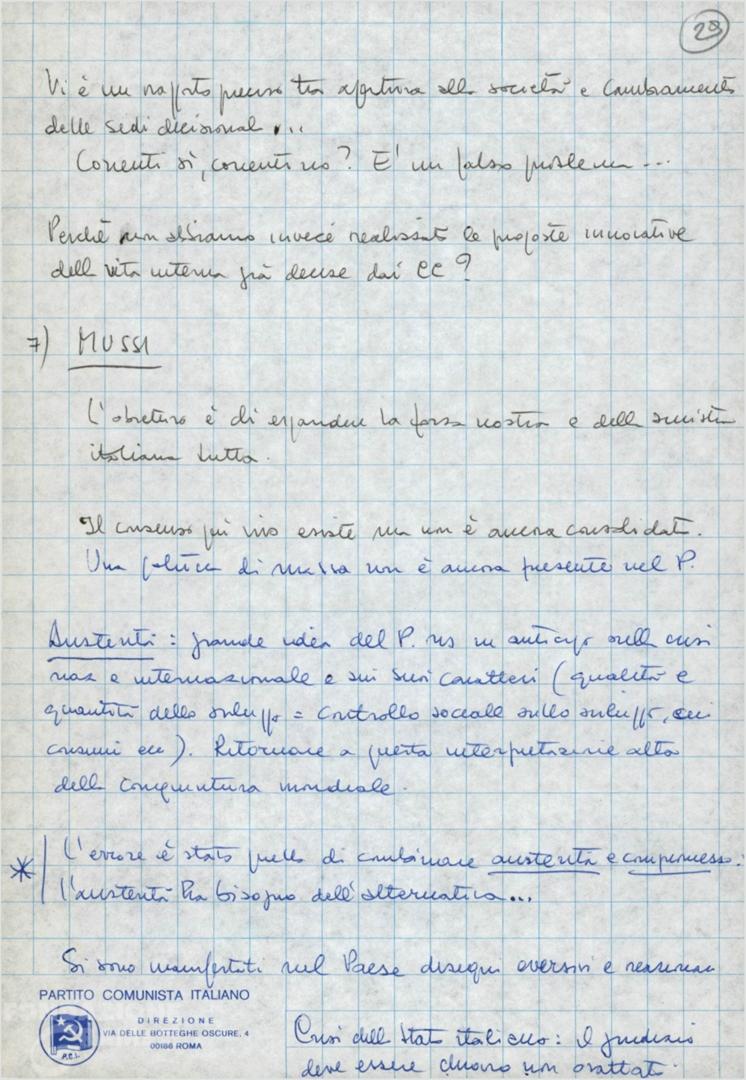 28
Vi è un rapporto preciso tra apertura alla società e cambiamento
delle sedi decisionali...
Correnti sì, correnti no? E' un falso problema...
Perchè non abbiamo invece realizzato le proposte innovative
della vita interna già decise dai CC?
7) MUSSI
L'obiettivo è di espandere la forza nostra e della sinistra
italiana tutta.
Il consenso esiste ma non è ancora consolidato.
Una politica di massa non è ancora presente nel P.
Austerità: grande idea del P. ns in anticipo sulla crisi
naz e internazionale e sui suoi caratteri (qualità e
quantità dello sviluppo = controllo sociale sullo sviluppo, sui
consumi ecc). Ritornare a questa interpretazione alta
della congiuntura mondiale.
* L'errore è stato quello di combinare austerità e compromesso:
l'austerità ha bisogno dell'alternativa...
Si sono manifestati nel Paese disegni eversivi e reazionari
PARTITO COMUNISTA ITALIANO
DIREZIONE
VIA DELLE BOTTEGHE OSCURE, 4
00186 ROMA
P.C.I.
Crisi dello Stato italiano: il giudizio
deve essere chiaro non